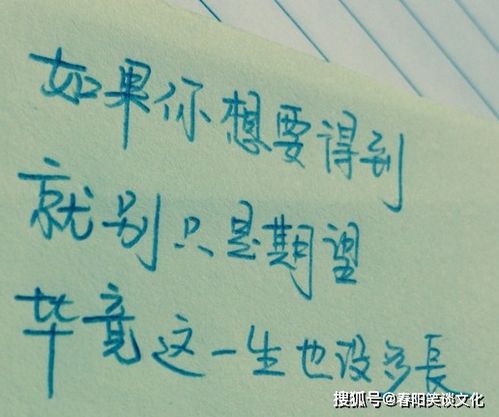 如果你想要得到
就别只是期望
毕竟这一生也没多長
搜狐号@春阳笑谈文化